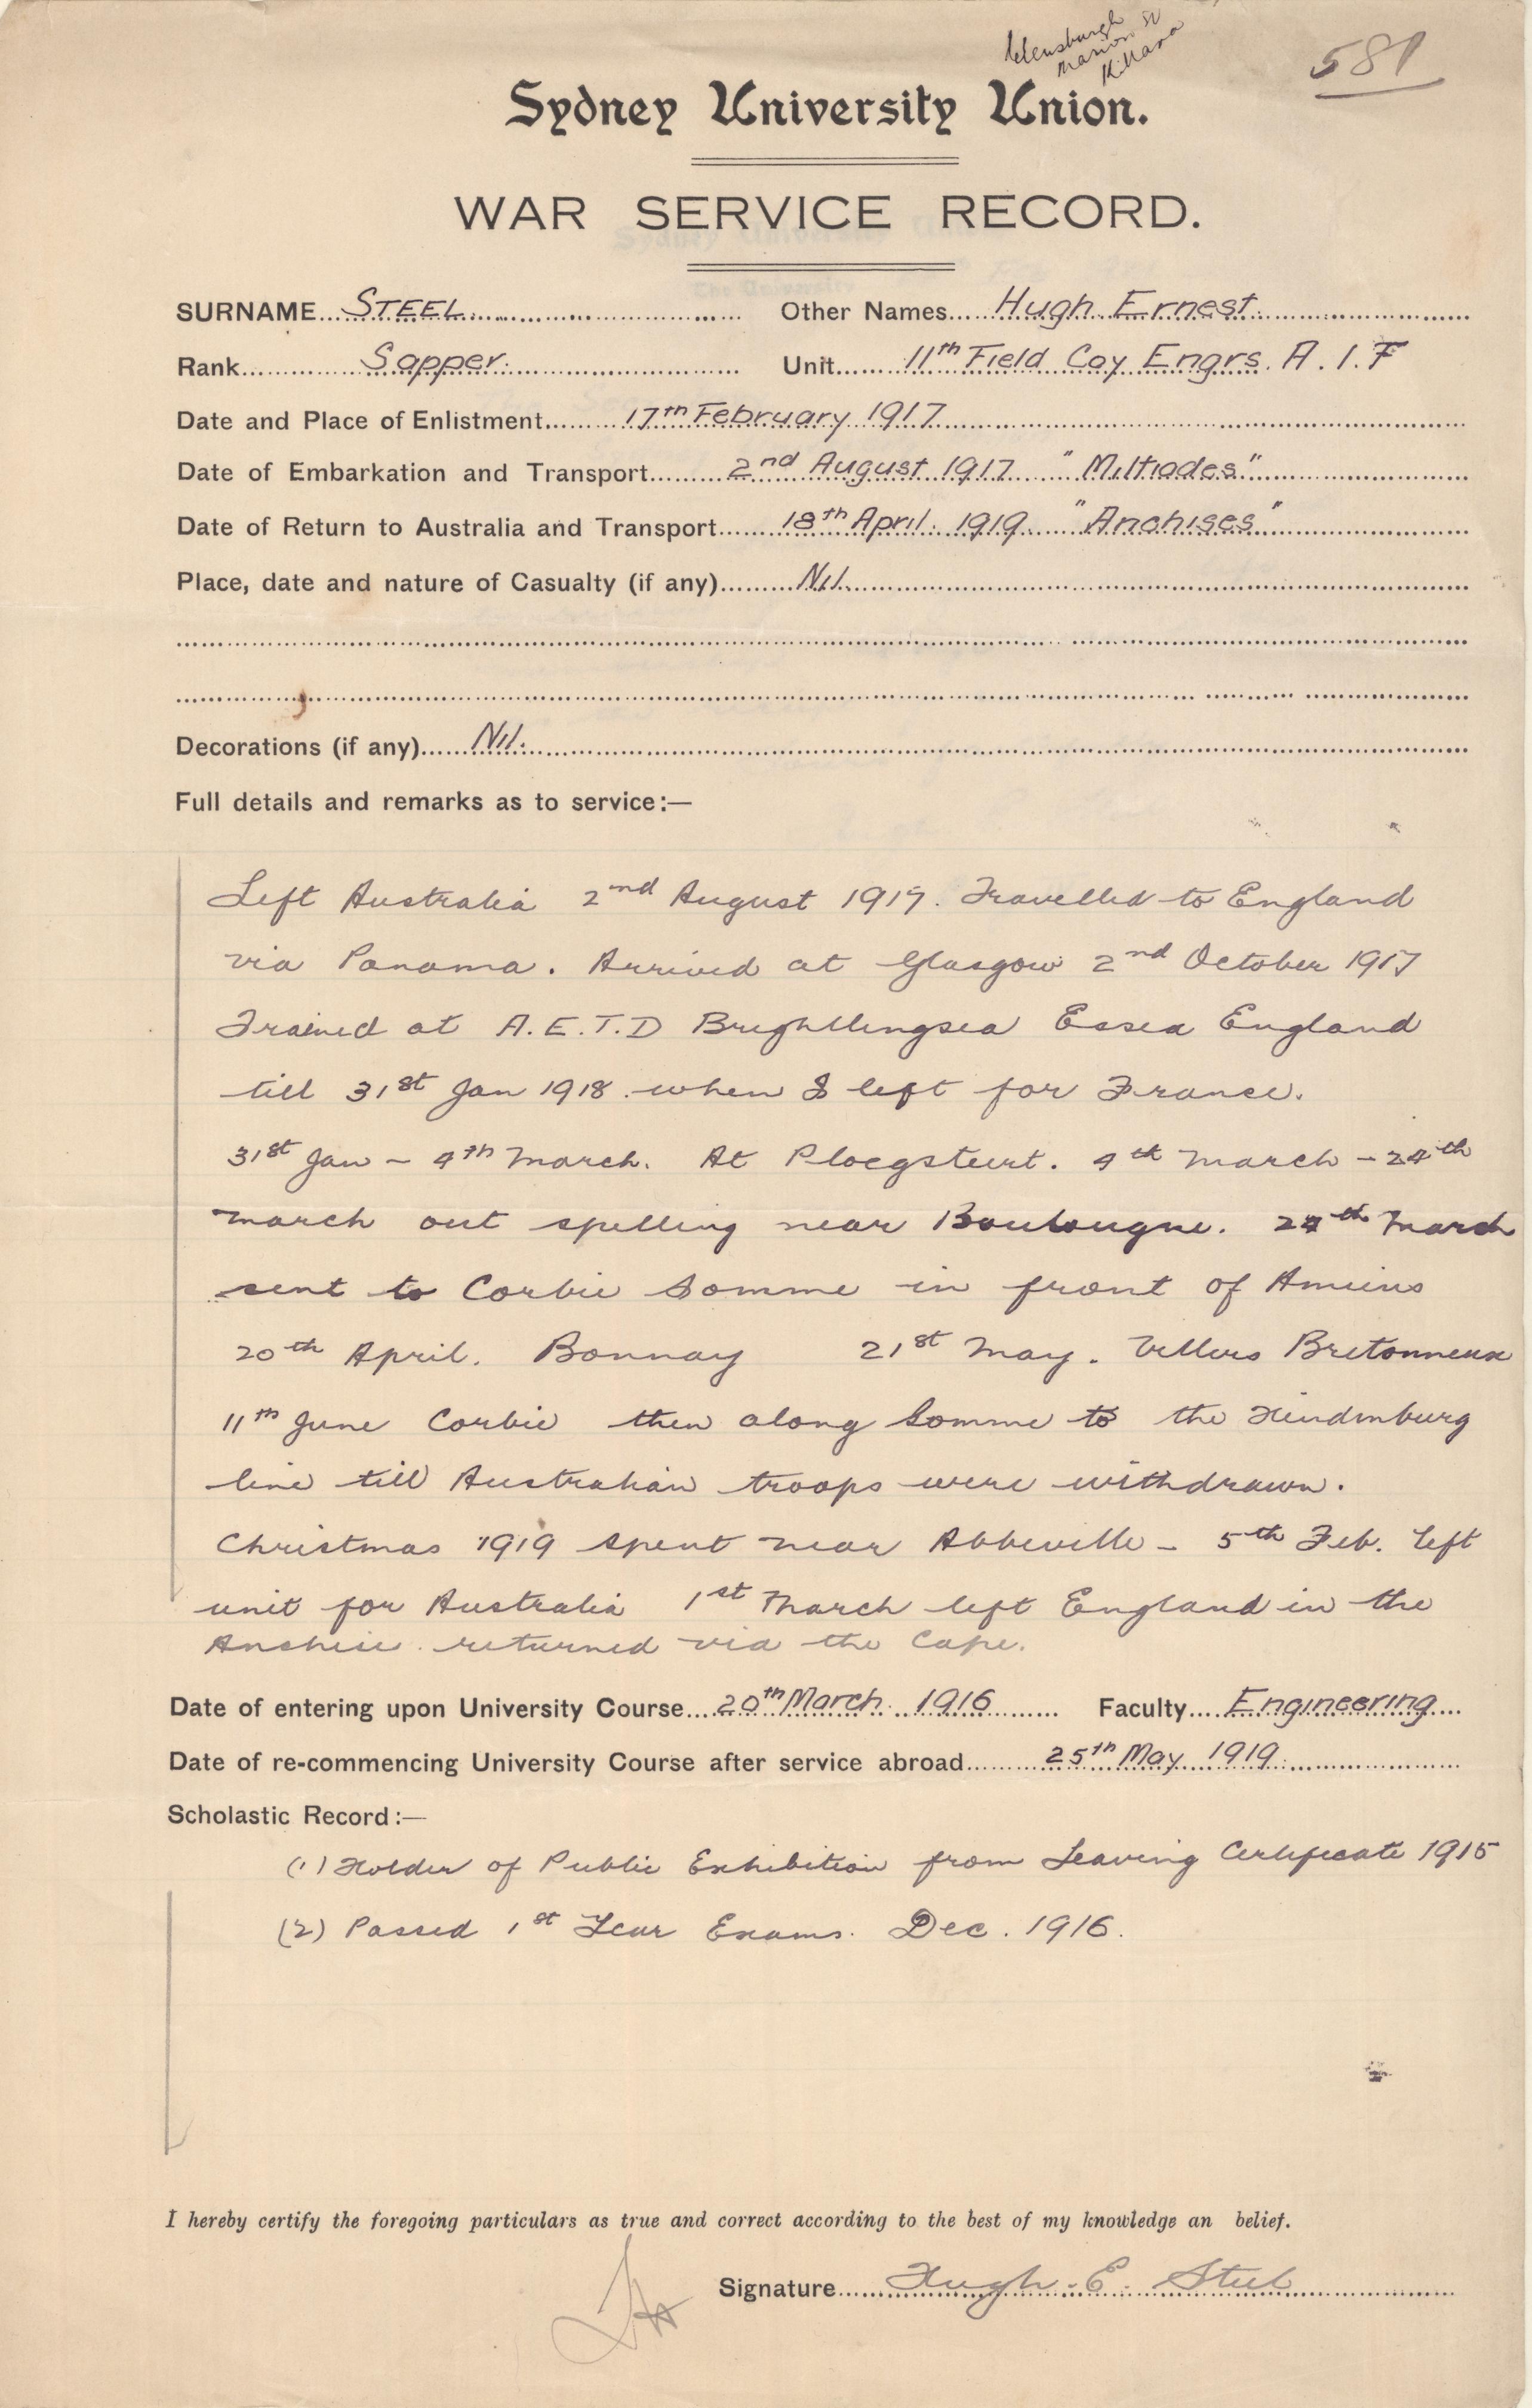 Helensburgh
Marion St
Killara
581
Sydney University Union.
WAR SERVICE RECORD.
SURNAME... STEEL. Other Names... Hugh Ernest.
Rank... Sapper. Unit... 11th Field Coy Engrs. A.I.F
Date and Place of Enlistment... 17th February 1917
Date of Embarkation and Transport... 2nd August 1917 "Miltiades"
Date of Return to Australia and Transport... 18th April. 1919. "Anchises"
Place, date and nature of Casualty (if any)... Nil.
Decorations (if any)... Nil.
Full details and remarks as to service:—
Left Australia 2nd August 1917. Travelled to England
via Panama. Arrived at Glasgow 2nd October 1917
Trained at A.E.T.D Brightlingsea Essex England
till 31st Jan 1918. when I left for France.
31st Jan – 4th March. At Ploegsteurt. 4th March – 24th
March out spelling near Boulougne. 24th March
sent to Corbie Somme in front of Amiens
20th April. Bonnay 21st May. Villers Bretonneux
11th June Corbie then along Somme to the Hindenburg
line till Australian troops were withdrawn.
Christmas 1919 spent near Abbeville – 5th Feb. left
unit for Australia 1st March left England in the
Anchise. returned via the Cape.
Date of entering upon University Course... 20th March. 1916 Faculty... Engineering
Date of re-commencing University Course after service abroad... 25th May 1919.
Scholastic Record:—
(1) Holder of Public Exhibition from Leaving Certificate 1915
(2) Passed 1st Year Exams. Dec. 1916.
I hereby certify the foregoing particulars as true and correct according to the best of my knowledge an belief.
Signature... Hugh. E. Steel